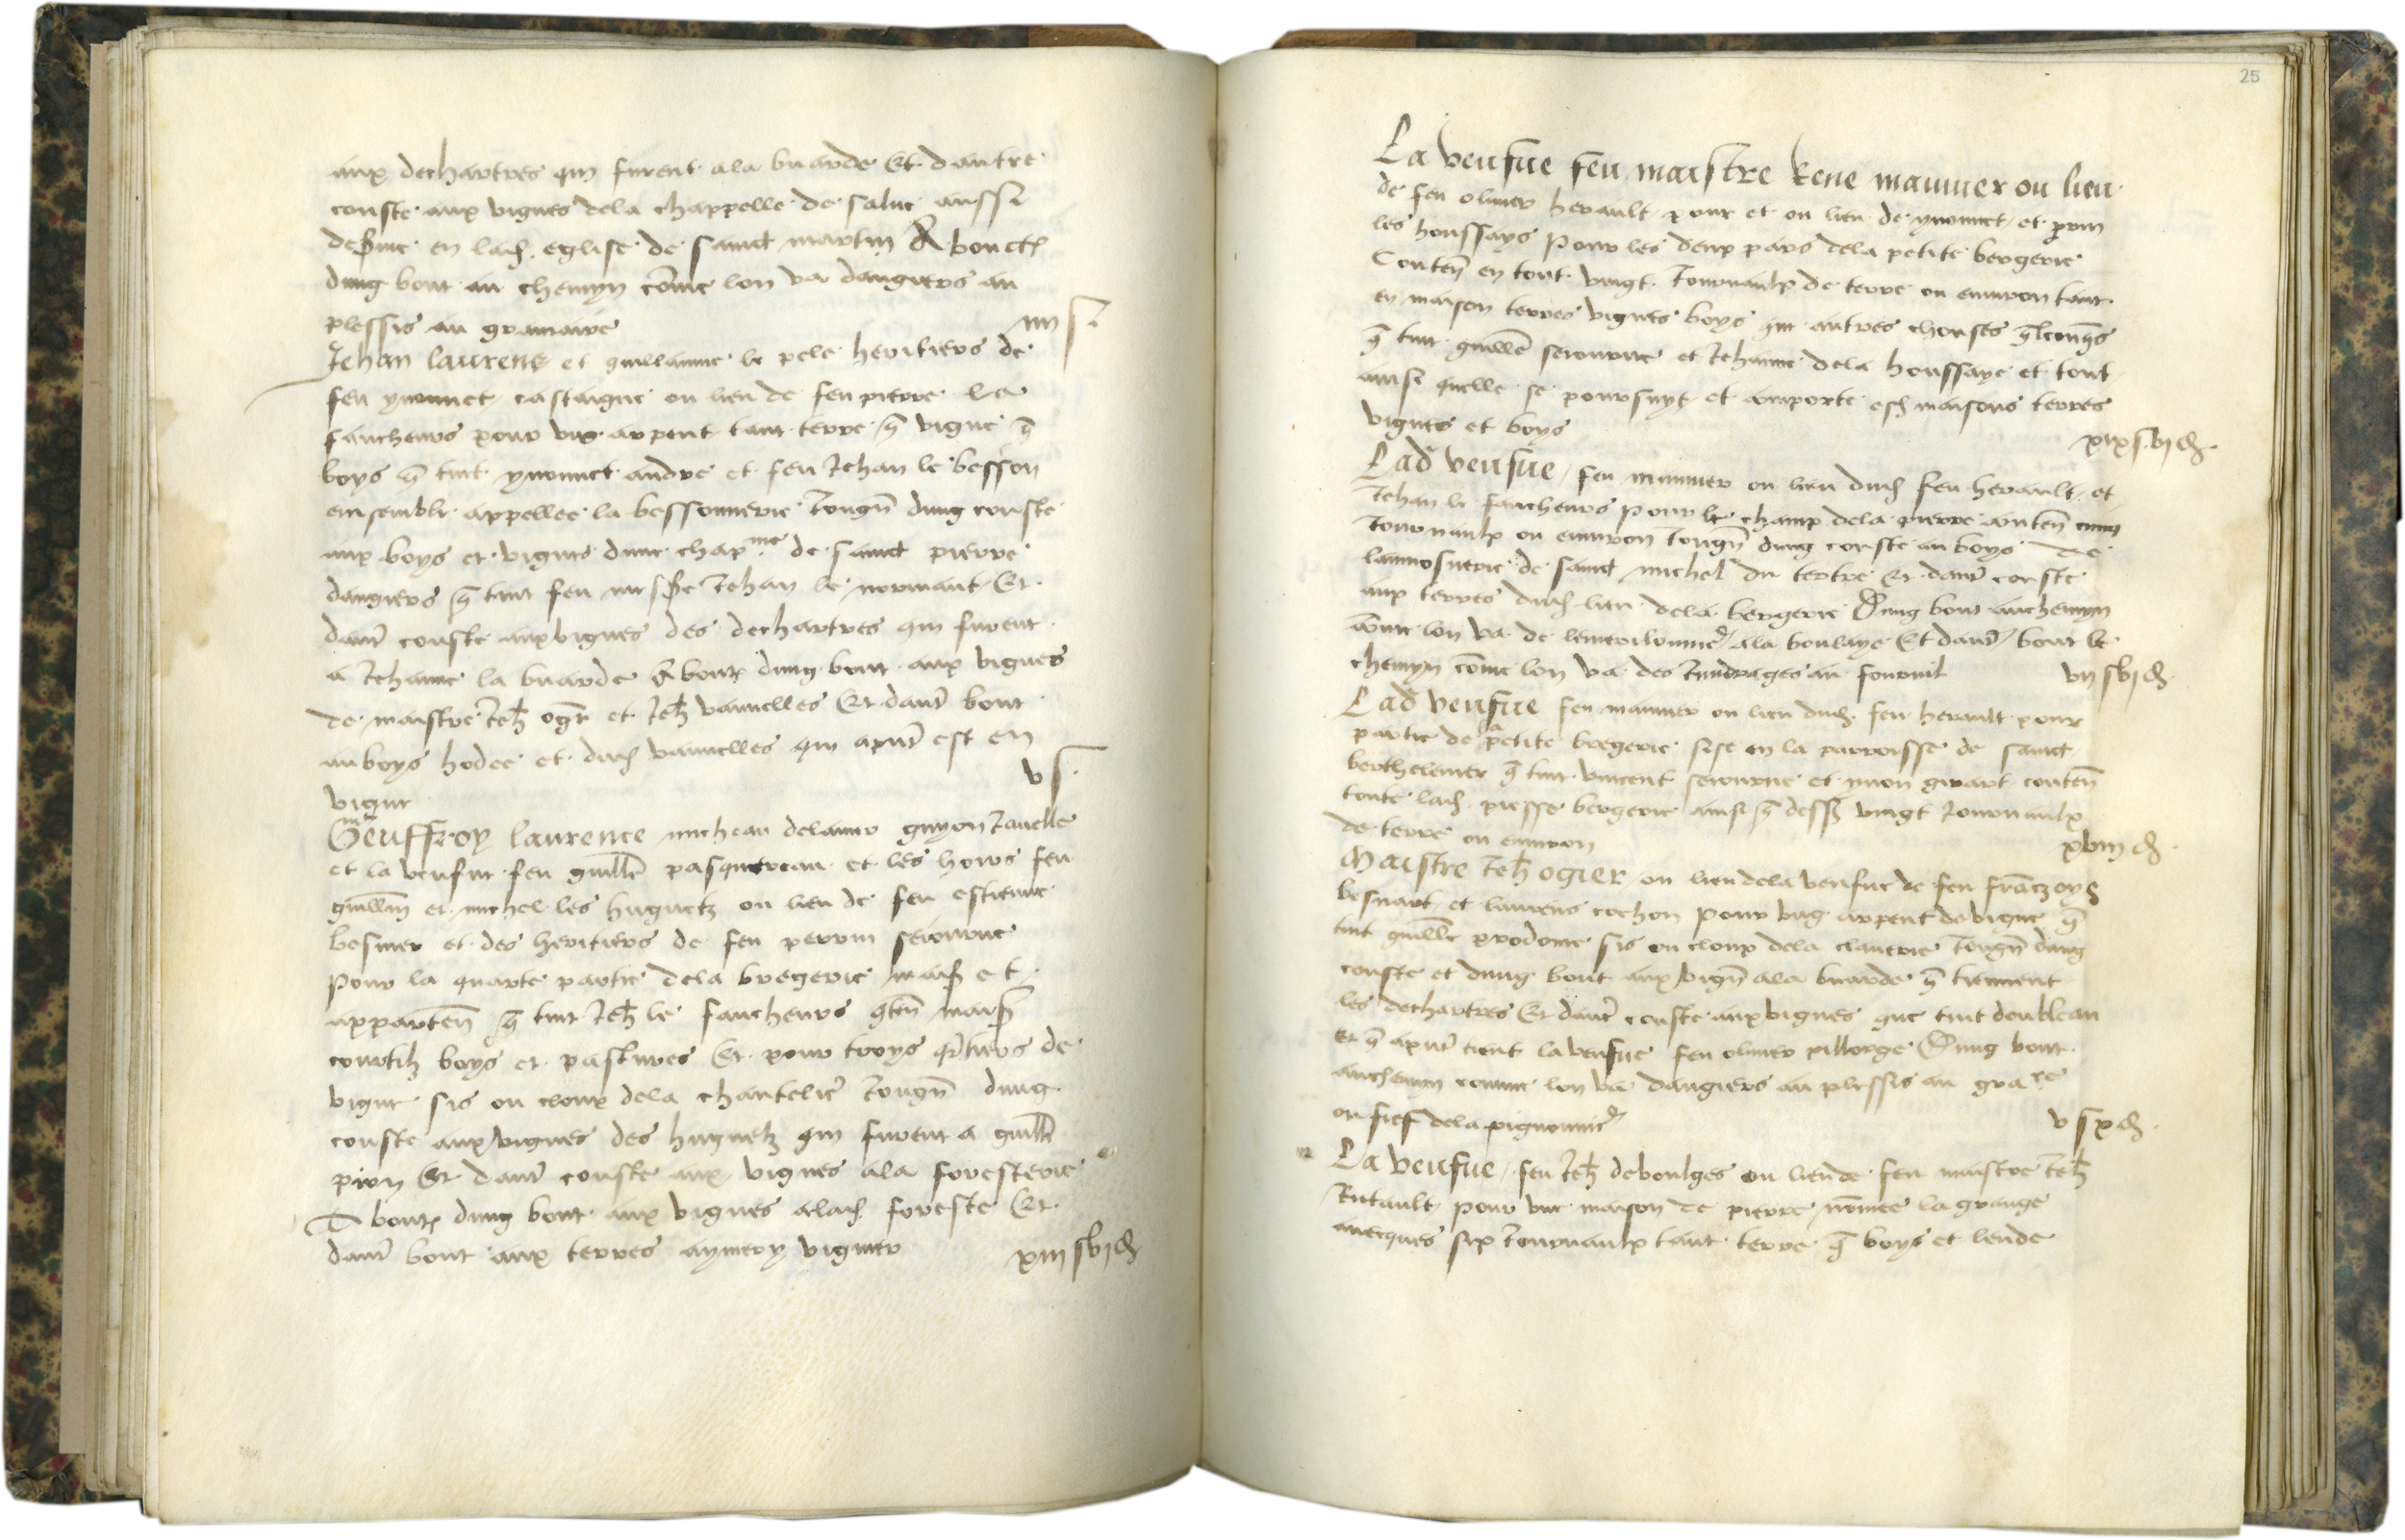 aux dechartres qui furent ala buarde Et dautre
couste aux vignes dela chappelle de salue aussi
desseruie en lad. eglise de sainct martin Aboutēs
dung bout au chemyn cōme lon va dangiers au
plessis au gramaire
iiii s.
Jehan laurens et guillaume le pele heritiers de
feu yvonnet castaigne ou lieu de feu pierre le
faucheurs pour ung arpent tant terre q̄ vigne q̄
boys q̄ tint yvonnet andre et feu Jehan le besson
ensemble appellee la bessonnerie Joūgn̄ dung couste
aux boys et vignes dune chap.nie de sainct pierre
dangiers q̄ tint feu messe Jehan le normant Et
daut̄ couste aux vignes des dechartres qui furent
a Jehanne la buarde About. dung bout aux vignes
de maistre Jeh. oḡr et Jeh. vannelles Et daut̄ bout
au boys hodee et dud. vannelles qui a p̄nt est en
vigne
v s.
mc Geuffroy laurence micheau delaunay guyon Janelle
et la veufue feu guill̄e pasquereau et les hoirs feu
guill̄m et michel les huguetz ou lieu de feu estienne
besnier et des heritiers de feu perrin seiourne
pour la quarte partie dela bregerie mais. et
apparten̄ q̄ tint Jeh. le faucheurs q̄ten̄ mais.
courtilz boys et pastures Et pour troys q̄rtiers de
vigne sis ou cloux dela chantelie Joūgn̄ dung
couste aux vignes des huguetz qui furent a guill̄
pion Et daut̄ couste aux vignes ala foresterie
About. dung bout aux vignes alad. foreste Et
daut̄ bout aux terres aymery vigner
xiii s. vi d.
25
La veufue feu maistre Rene maunier ou lieu
de feu oliuier herault pour et ou lieu de yvonnet et perrin
les houssays pour les deux pars dela petite bergerie
Conten̄ en tout vingt Journaulx de terre ou enuiron tant
en maison terres vignes boys que autres chouses q̄lconq̄s
q̄ tint guill̄e seiourne et Jehanne dela houssaye et tout
ainsi quelle se poursuyt et comporte esd. maisons terres
vignes et boys
xix s. vi d.
Lad veufue feu maunier ou lieu dud. feu herault et
Jehan le faucheurs pour le champ dela pierre conten̄ cinq
Journaulx ou enuiron Joūgn̄ dung couste au boys de
laumosnerie de sainct michel du tertre Et daut̄ couste
aux terres dud. lieu dela bergerie Dung bout au chemyn
cōme lon va de lemerilonnie ala boulaye Et daut̄ bout le
chemyn cōme lon va des Jundrages au fournil
vii s. vi d.
Lad veufue feu maunier ou lieu dud. feu herault pour
partie de la petite bregerie sise en la parroisse de sainct
berthelemer q̄ tint vincent seiourne et yvon girart conten̄
toute lad. piesse bergerie ainsi q̄ dess. vingt Journaulx
de terre ou enuiron
xviii d.
Maistre Jeh. ogier ou lieu dela veufue de feu frāczoys
besnart et laurens cochon pour ung arpent de vigne q̄
tint guill̄e prodome sis ou cloux dela clauerie Joūgn̄ dung
couste et dung bout aux vign̄ ala buarde q̄ tiennent
les dechartres Et daut̄ couste aux vignes que tint doubleau
et q̄ a p̄nt tient la veufue feu oliuier pillorge Dung bout
au chemyn comme lon va dangiers au plessis au gra re
ou fief dela pignonnie
v s. x d.
La veufue feu Jeh. deboulges ou lieu de feu maistre Jeh.
Rutault pour une maison de pierre nōmee la grange
auecques six Journaulx tant terre q̄ boys et lende